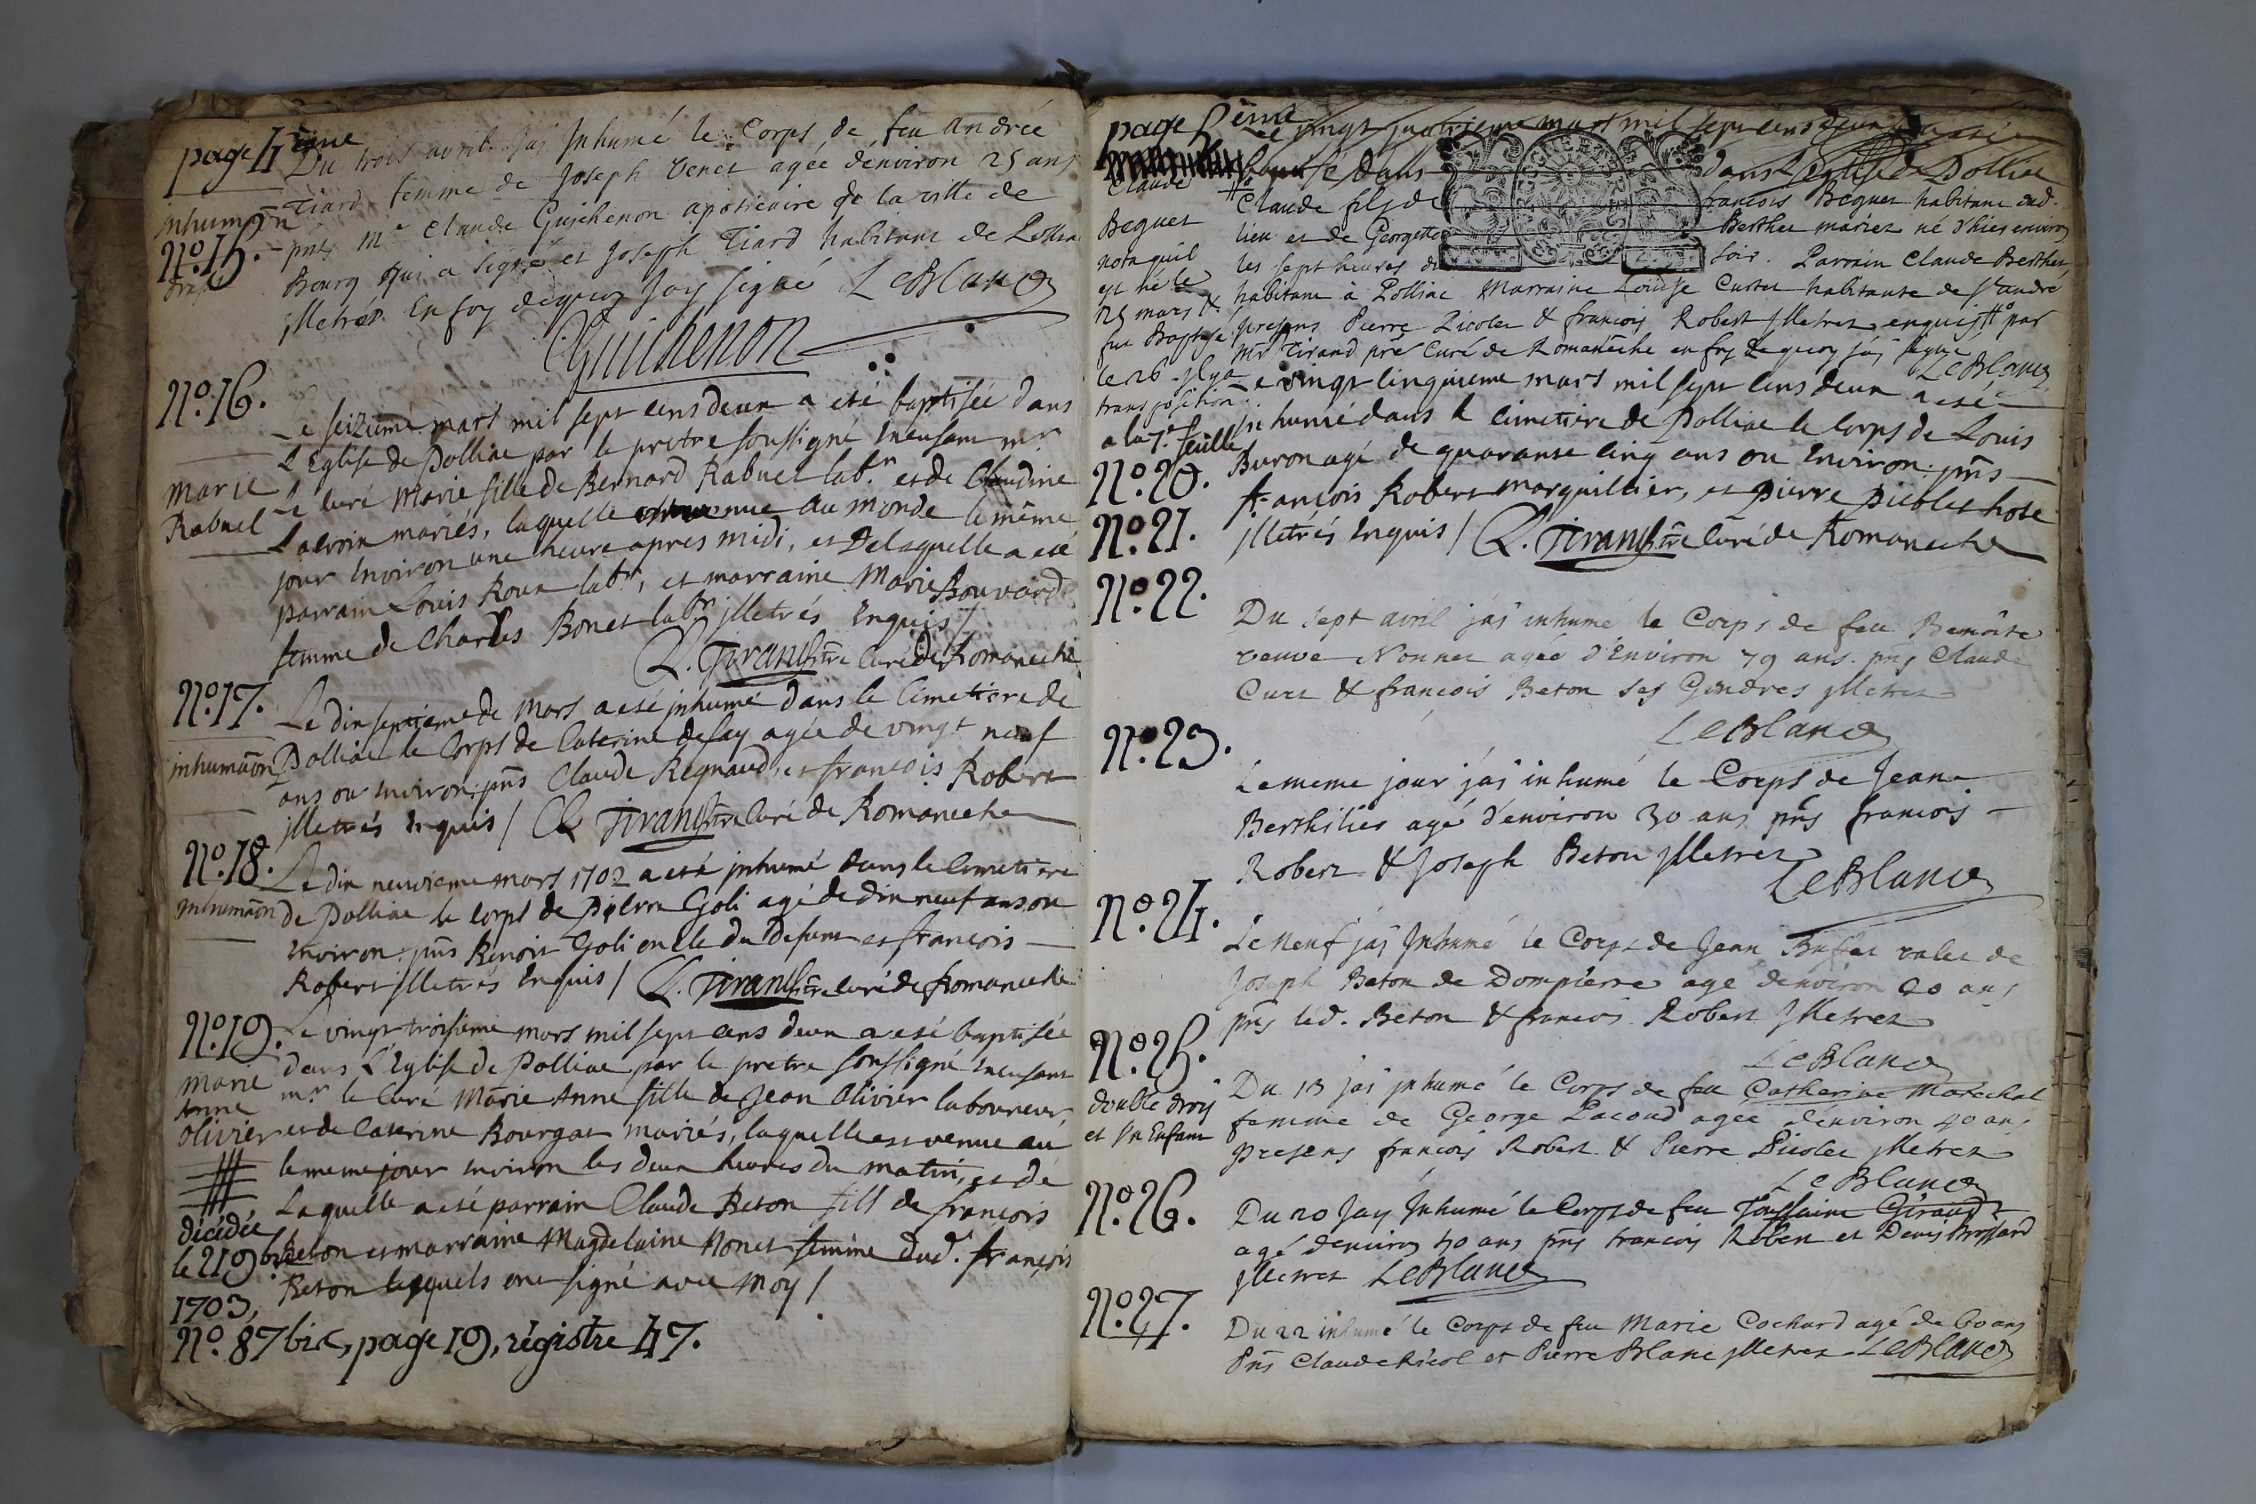 page 4 ème
Du trois avril jai Inhumé le Corps de feu Andrée
Tiard femme de Joseph Venet agée d'environ 25 ans
pnts Mr Claude Guichenon apoticaire de la ville de
Bourg qui a signé et Joseph Tiard habitant de Pollia
jlletrés En foy dequoy Jay signé LeBlanc
inhumaõn
No. 15.
Guichenon
No. 16.
Marie
Rabuel
Le seizieme mars mil sept cens deux a eté baptisée dans
L'Eglise de Polliac par le pretre soussigné Incusant mr
Le curé Marie fille de Bernard Rabuel labr. et de Claudine
Lacroix mariés, laquelle venue au monde le même
jour Environ une heure apres midi, et Delaquelle a eté
parrain Louis Roux labr, et marraine Marie Bouvard
femme de Charles Bonet labr jlletrés Enquis /
C. Tirand ptre curé de Romaneche
No. 17.
inhumaõn
Le dix septieme de Mars a esté jnhumé dans le Cimetiere de
Polliac le Corps de Caterine defay agée de vingt neuf
ans ou Environ, pñs Claude Regnaud, et françois Robert
jlletrés Enquis / C. Tirand ptre Curé de Romaneche
No. 18.
inhumaõn
Le dix neuvieme mars 1702 a eté jnhumé dans le Cimetiere
de Polliac le corps de Pierre Goli agé de dix neuf ans ou
Environ. pñs Benoit Goli oncle du Defunt et françois
Robert jlletrés Enquis / C. Tirand ptre curé de Romaneche
No. 19.
Marie
Anne
Olivier
décédée
le 21 9bre
1703,
No. 87 bis, page 19, régistre 47.
Le vingt troisieme mars mil sept cens deux a esté baptisée
dans L'Eglise de Polliac par le pretre soussigné Incusant
mr le Curé Marie Anne fille de Jean Olivier laboureur
et de Caterine Bourgat mariés, laquelle est venue au
le meme jour Environ les deux heures du matin, et de
Laquelle a esté parrain Claude Beton fils de françois
Beton et marraine Magdelaine Nonet femme dud. françois
Beton lesquels ont signé avec moy /
page 5 ème
Le vingt quatrieme mars mil sept cens deux
baptisé dans dans L'Eglise de Polliac
Claude
Beguet
nota quil
est né le
25 mars &
fut Baptisé
le 26. jl ya
transposition
a la 7e feuille
Claude fils de françois Beguet habitant aud.
lieu et de Georgette Berthet mariéz né d'hier environ
les sept heures du soir. Parrain Claude Berthet,
habitant à Polliac Marraine Louise Curtet habitante de St andré
presens Pierre Picolet & françois Robert jlletrez enquis par
Mr Tirand pre Curé de Romanêche en foy dequoy jáy signé
LeBlanc
No. 20.
No. 21.
Le vingt cinquieme mars mil sept cens deux a esté
jnhumé dans le cimetiere de Polliac le corps de Louis
Buron agé de quarante cinq ans ou Environ. pñs
françois Robert marguillier, et Pierre Picolet hote
jlletrés Enquis / C. Tirand ptre Curé de Romaneche
No. 22.
Du sept avril jáy inhumé le Corps de feu Benoîte
veuve Nonnet agée d'Environ 79 ans. pñs Claude
Curt & françois Beton ses Gendres jlletrez
LeBlanc
No. 23.
Le meme jour jáy inhumé le Corps de Jean
Berthilier agé d'environ 30 ans pñs françois
Robert & Joseph Beton jlletrez
LeBlanc
No. 24.
Le Neuf jáy Inhumé le Corps de Jean Buffet valet de
Joseph Beton de Dompierre agé d'environ 20 ans
pñs led. Beton & françois Robert Jlletrez
LeBlanc
No. 25.
double droit
et Un Enfant
Du 13 jáy jnhumé le Corps de feu Catherine Maréchal
femme de George Pacoud agée d'environ 40 ans
presens françois Robert & Pierre Picolet jlletrez
LeBlanc
No. 26.
Du 20 Jay Inhumé le Corps de feu Toussaint Giraud
agé d'environ 40 ans pñs francois Robert et Denis Brossard
jlletrez LeBlanc
No. 27.
Du 22 inhumé le Corps de feu Marie Cochard agé de 60 ans
Pñs Claude Nicol et Pierre Blanc jlletrez LeBlanc